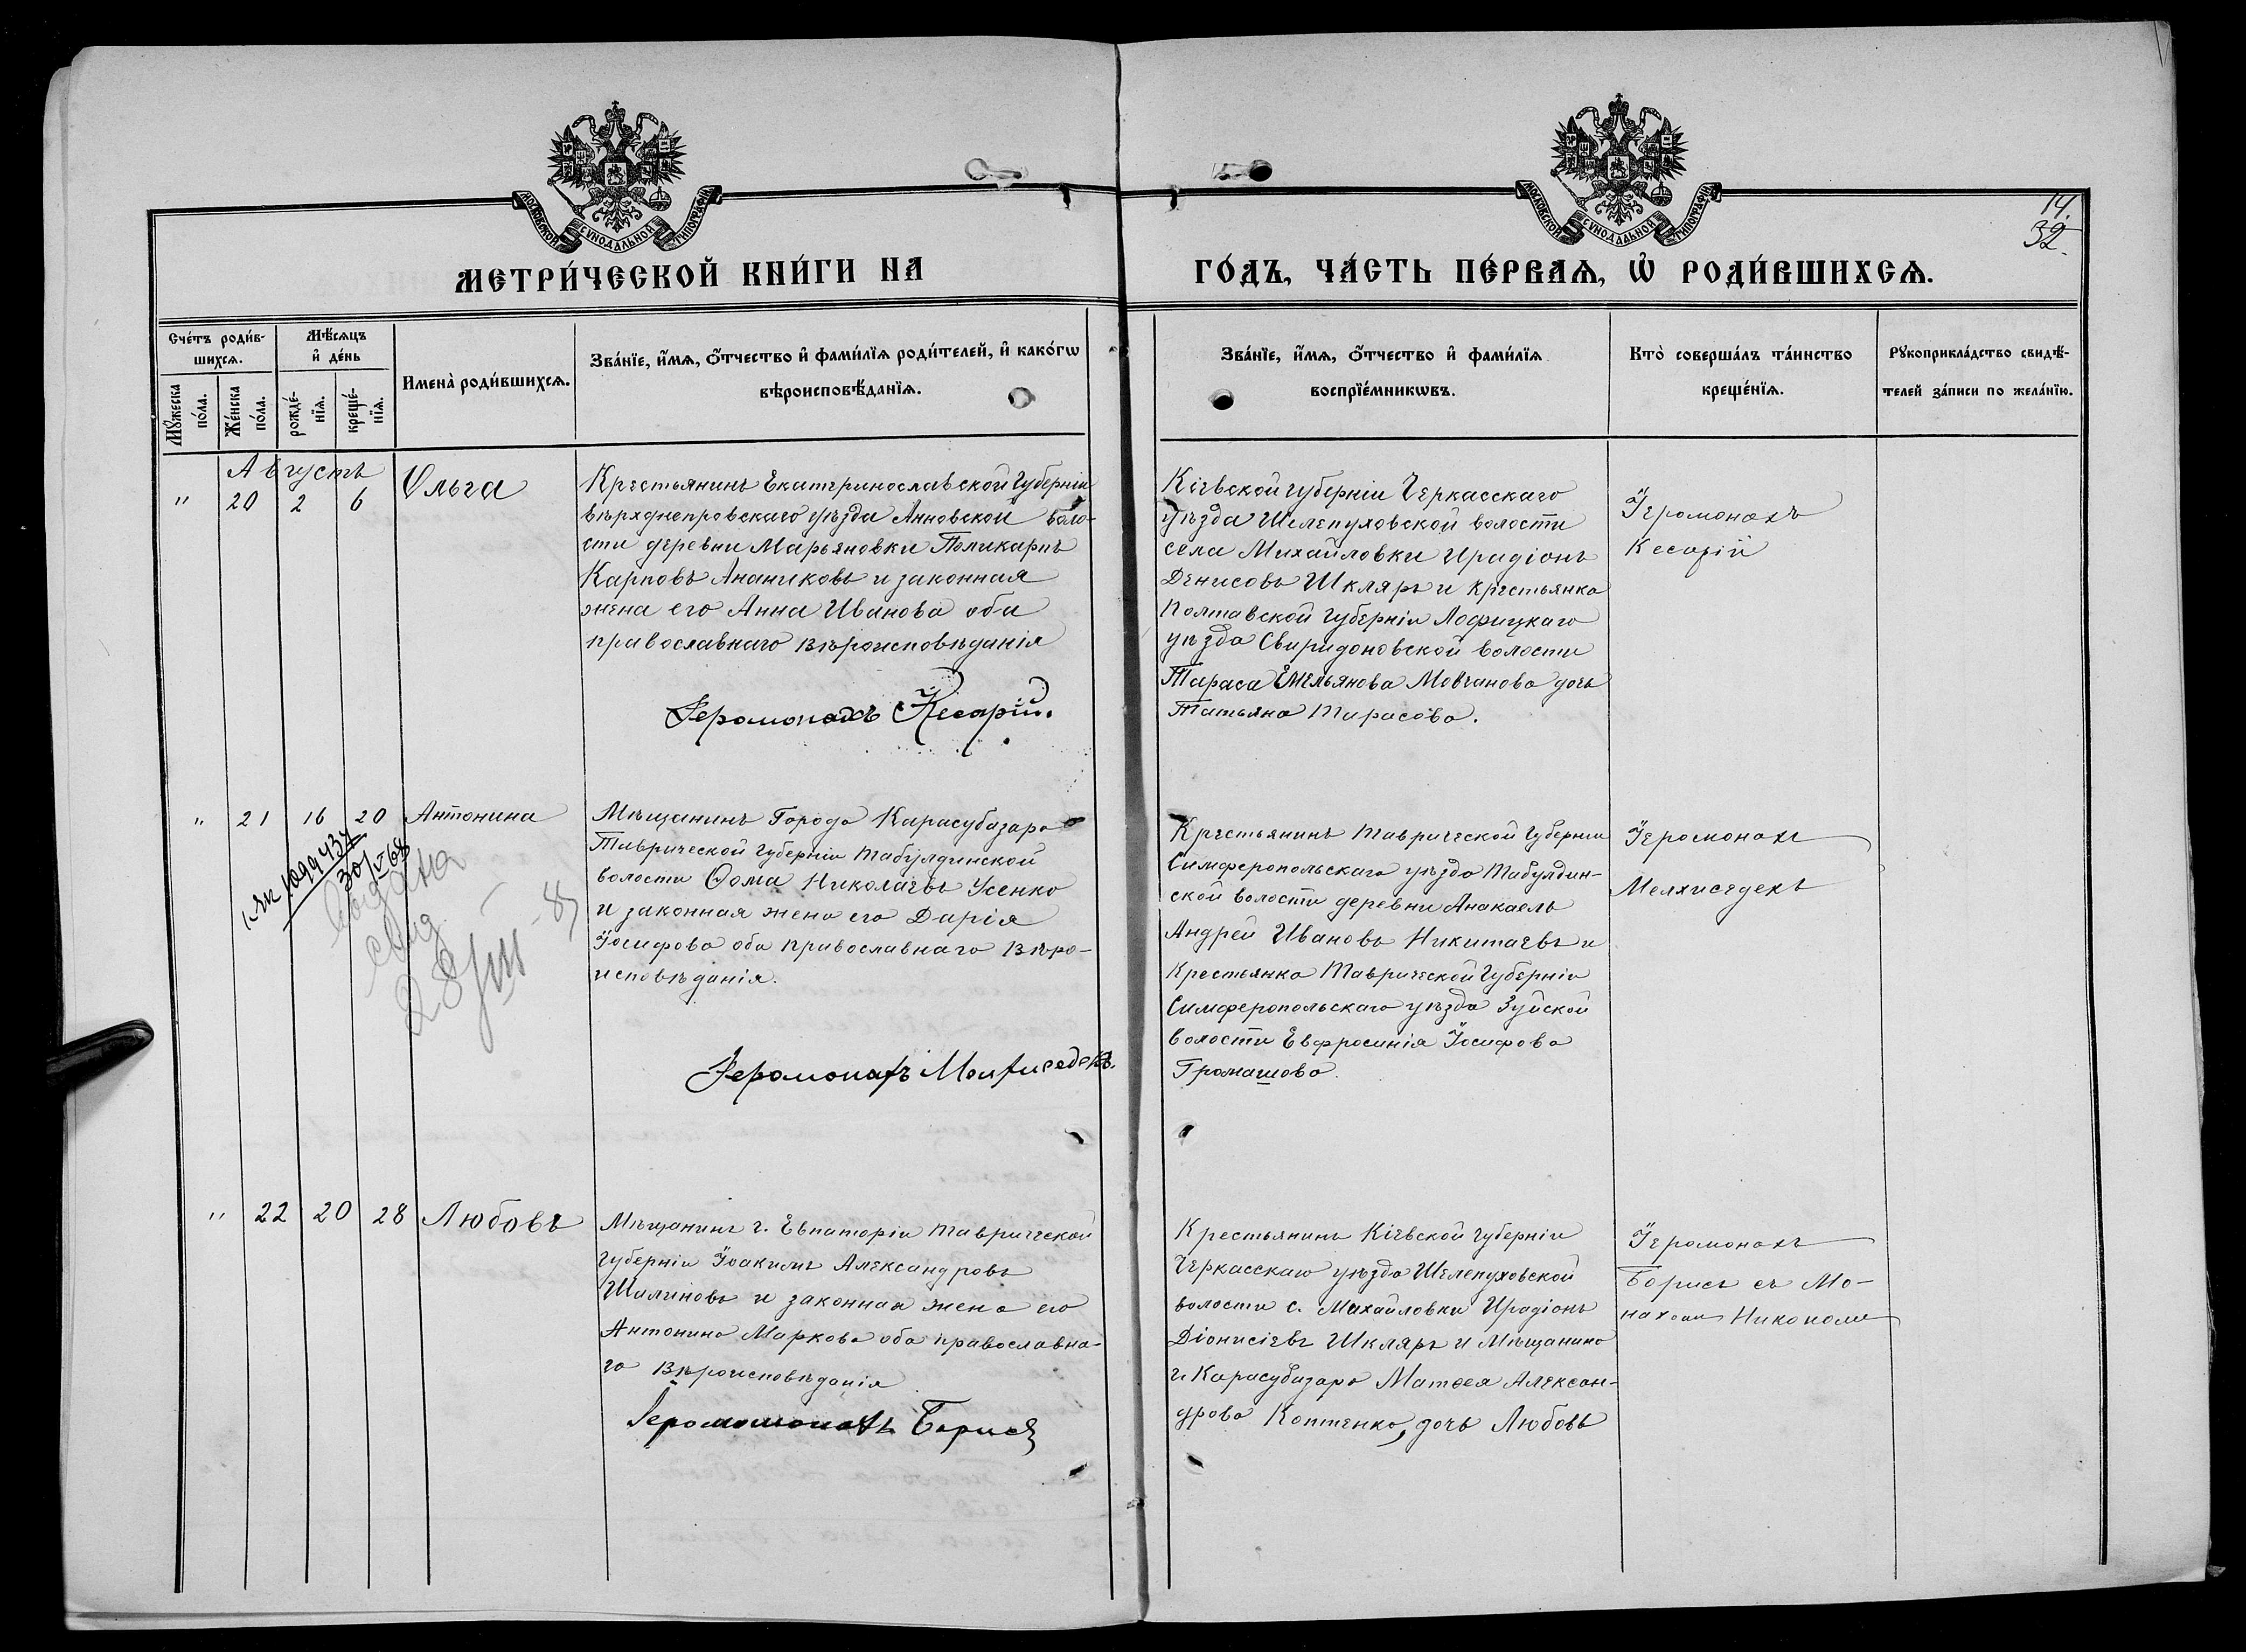 МОСКОВСКОЙ СѴНОДАЛЬНОЙ ТИПОГРАФІИ
МОСКОВСКОЙ СѴНОДАЛЬНОЙ ТИПОГРАФІИ
14.
32.
МЕТРИ́ЧЕСКОЙ КНИ́ГИ НА
ГО́ДЪ, ЧА́СТЬ ПЕ́РВАѦ, Ѡ҆ РОДИ́ВШИХСѦ.
Сче́тъ роди́в-
шихсѧ.
Мꙋжеска по́ла.
Же́нска по́ла.
Мѣ́сѧцъ
и҆ де́нь
рожде́-нїѧ.
креще́-нїѧ.
Имена̀ роди́вшихсѧ.
Зва́нїе, и҆́мѧ, ѻ҆́тчество и҆ фами́лїѧ роди́телей, и҆ како́гѡ
вѣроисповѣ́данїѧ.
Зва́нїе, и҆́мѧ, ѻ҆́тчество и҆ фами́лїѧ
воспрїе́мникѡвъ.
Кто̀ соверша́лъ та́инство
креще́нїѧ.
Рꙋкоприкла́дство свидѣ́-
телей за́писи по жела́нїю.
Августъ
" 20 2 6 Ольга
Крестьянинъ Екатеринославской Губерніи
Верхднепровскаго уѣзда Анновской воло-
сти деревни Марьяновки Поликарпъ
Карповъ Ананиковъ и законная
жена его Анна Иванова оба
православнаго вѣроисповѣданія
Іеромонахъ Кесарій.
Кіевской губерніи Черкасскаго
уѣзда Шелепуховской волости
села Михайловки Иродіонъ
Денисовъ Шкляръ и крестьянка
Полтавской Губерніи Лофицкаго
уѣзда Свиридоновской волости
Тараса Емельянова Мовчанова дочь
Татьяна Тарасова.
Іеромонахъ
Кесарій
" 21 16 20 Антонина
1099434
30/V 68
выдана
свид
28/III - 8
Мѣщанинъ Города Карасубазара
Таврической Губерніи Табулдинской
волости Ѳома Николаевъ Усенко
и законная жена его Дарія
Іосифова оба православнаго вѣро-
исповѣданія.
Іеромонахъ Мелхиседекъ.
Крестьянинъ Таврической Губерніи
Симферопольскаго уѣзда Табулдин-
ской волости деревни Анакаель
Андрей Ивановъ Никитаевъ и
Крестьянка Таврической Губерніи
Симферопольскаго уѣзда Зуйской
волости Евфросинія Іосифова
Громашова
Іеромонахъ
Мелхиседекъ
" 22 20 28 Любовь
Мѣщанинъ г. Евпаторіи Таврической
Губерніи Іоакимъ Александровъ
Шалиновъ и законная жена его
Антонина Маркова оба православна-
го вѣроисповѣданія
Іеромонахъ Борисъ
Крестьянинъ Кіевской Губерніи
Черкасскаго уѣзда Шелепуховской
волости с. Михайловки Иродіонъ
Діонисіевъ Шкляръ и Мѣщанина
г. Карасубазара Матѳея Алексан-
дрова Коптенко, дочь Любовь
Іеромонахъ
Борисъ съ Мо-
нахомъ Никономъ